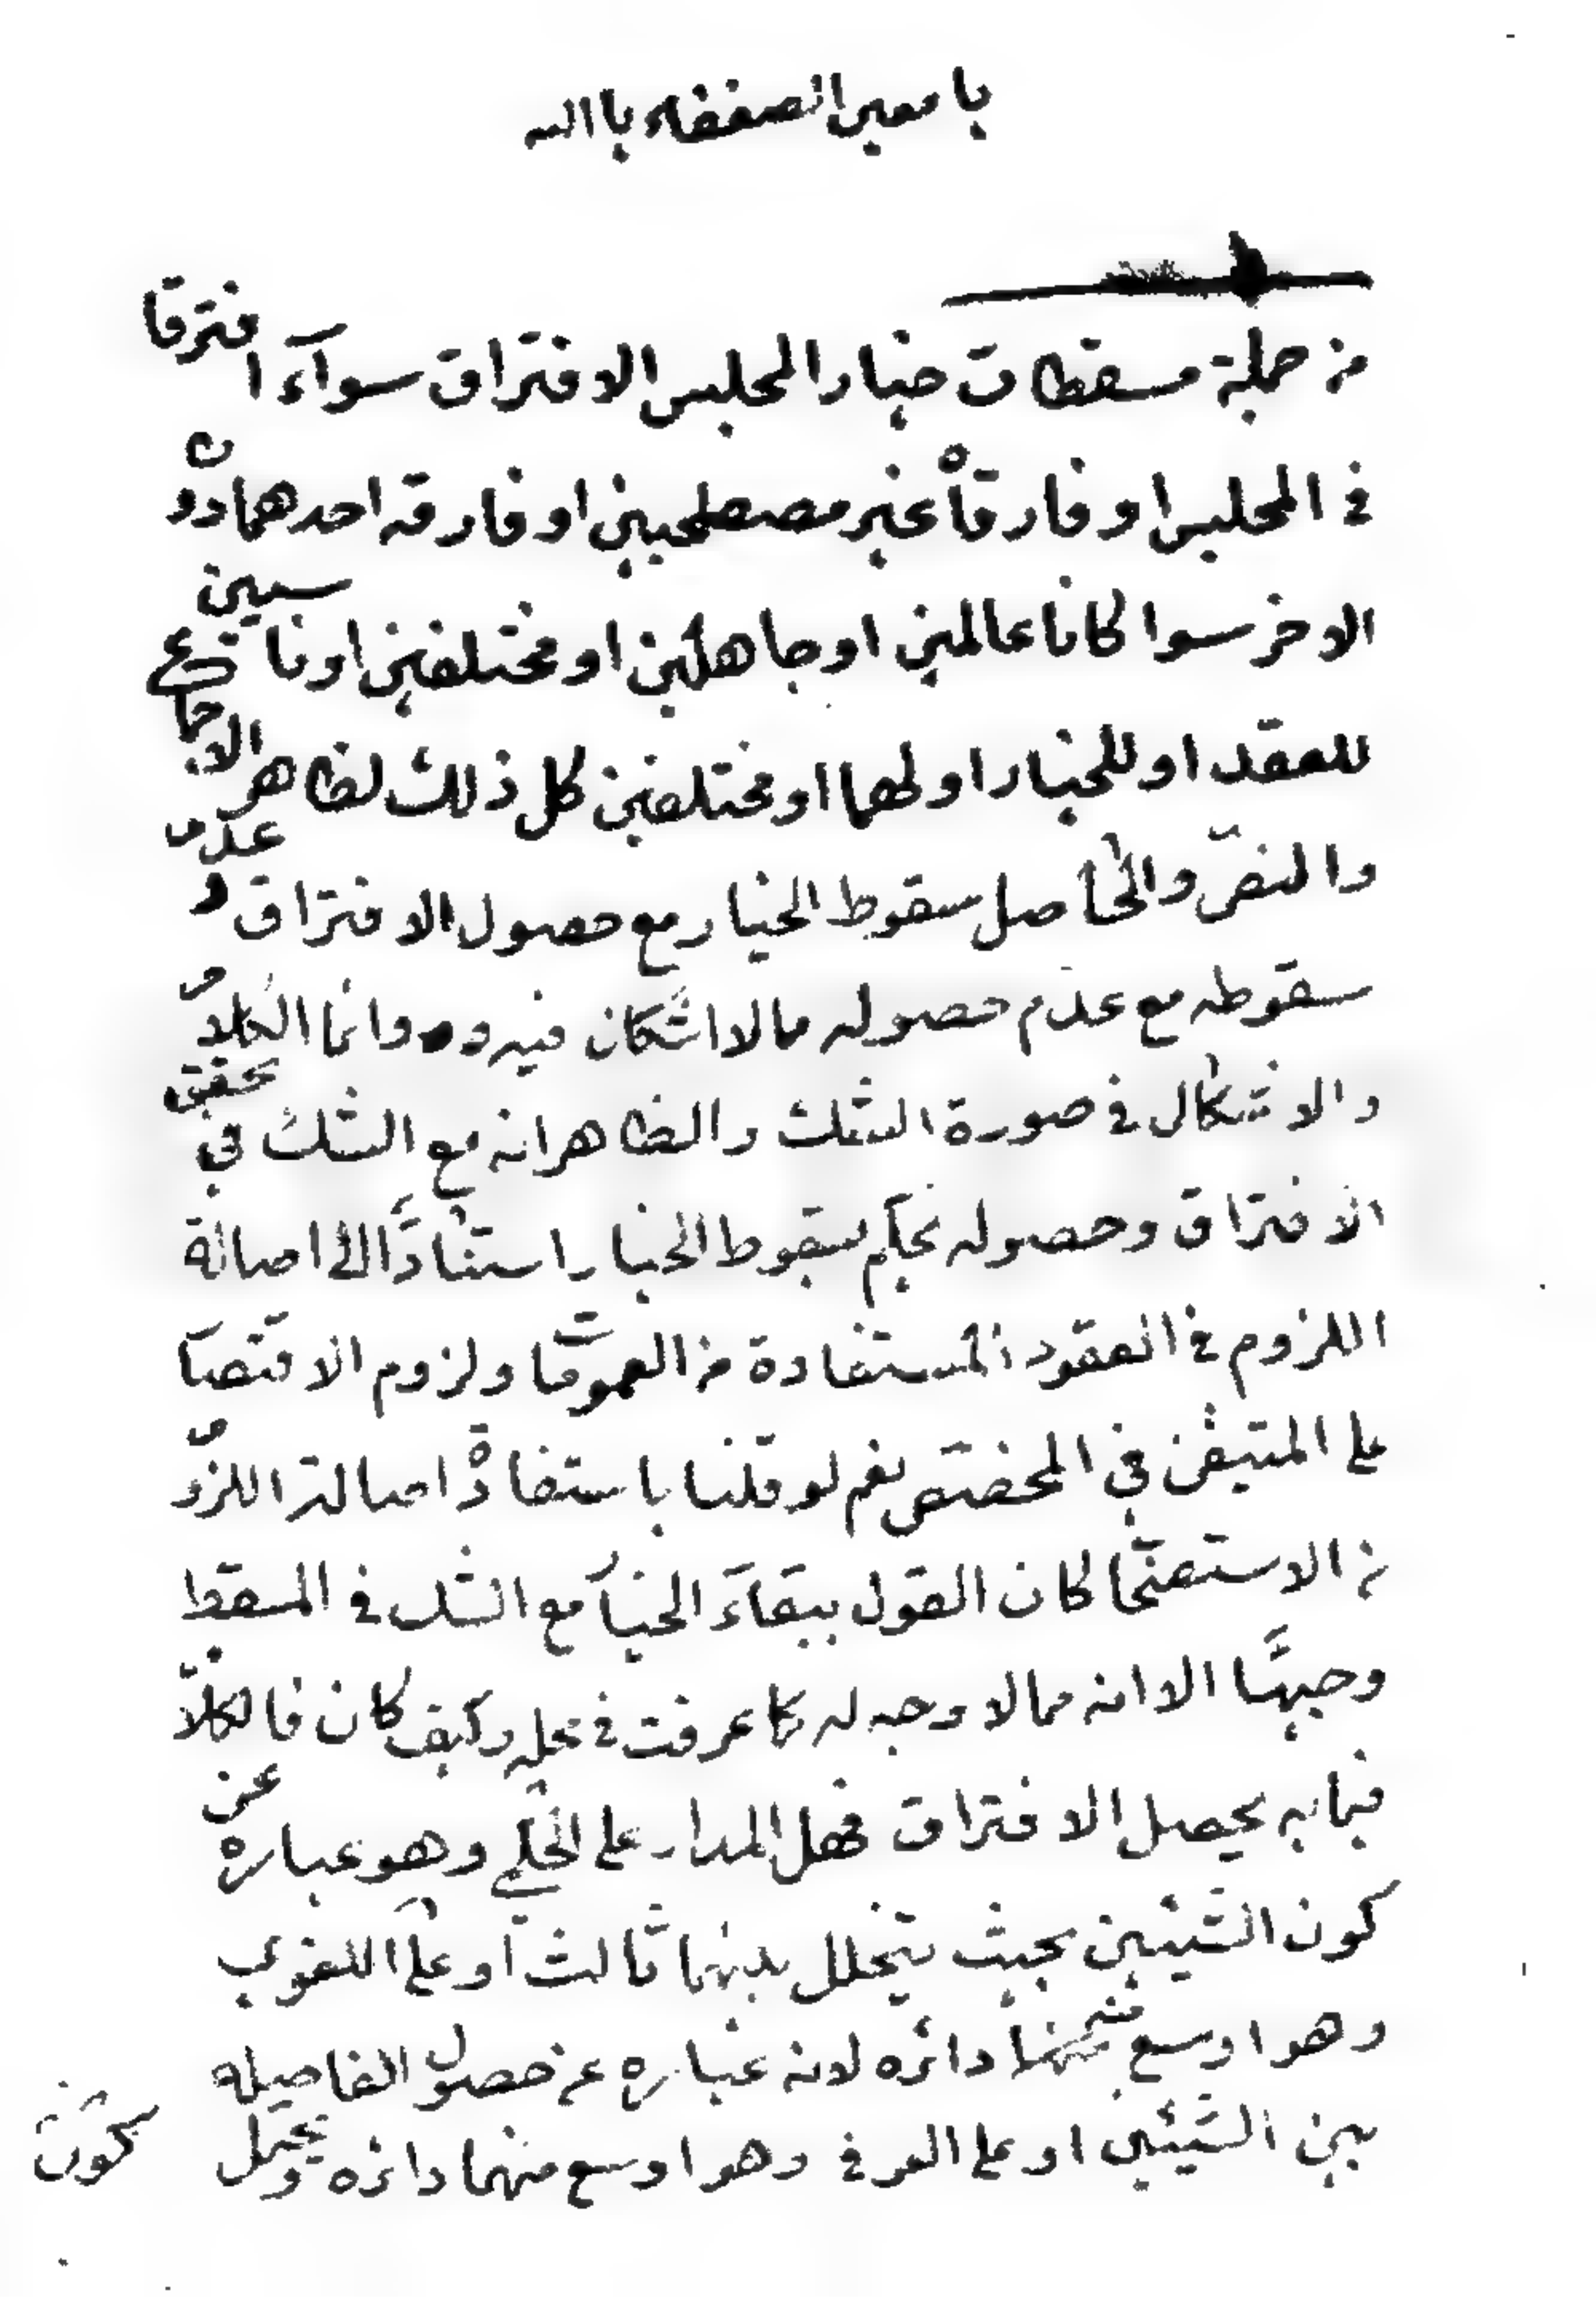 يا معين الضعفاء يا الله
من جملة مسقطات خيار المجلس الافتراق سواء افترقا
في المجلس او فارقاه غير مصطلحين او فارقه احدهما دون
الاخر سوا كانا عالمين او جاهلين او مختلفين او ناسيين
للعقد او للخيار او لهما او مختلفين كل ذلك لظاهر الاجماع
والنصّ والحاصل سقوط الخيار مع حصول الافتراق و عدم
سقوطه مع عدم حصوله مما لا اشكال فيه وانما الكلام
والاشكال في صورة الشك والظاهر انه مع الشك في تحقق
الافتراق وحصوله يحكم بسقوط الخيار استنادًا الى اصالة
اللزوم في العقود المستفادة من العمومات ولزوم الاقتصار
على المتيقن في المخصّص نعم لو قلنا باستفادة اصالة اللزوم
من الاستصحاب كان القول ببقاء الخيار مع الشك في المسقط
وجيهًا الا انه مما لا وجه له كما عرفت في محله وكيف كان فالكلام
فيما به يحصل الافتراق فهل المدار على الحكمي وهو عبارة عن
كون الشيئين بحيث يتخلل بينهما ثالث او على اللغوي
وهو اوسع منه دائره لانه عباره عن حصول الفاصله
بين الشيئين او على العرفي وهو اوسع منهما دائره ويحتمل
كون